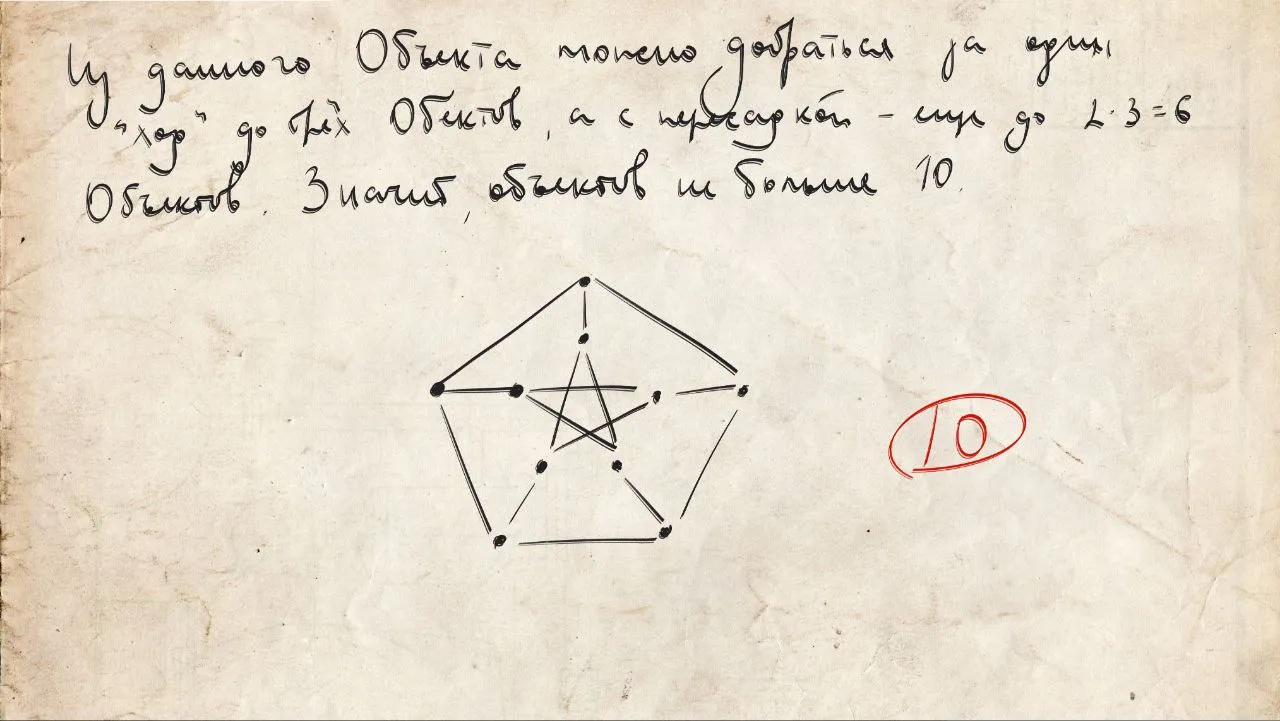 Из данного Объекта можно добраться за один
"ход" до трёх Обектов, а с пересадкой - еще до 2·3=6
Объектов. Значит, объектов не больше 10.
10